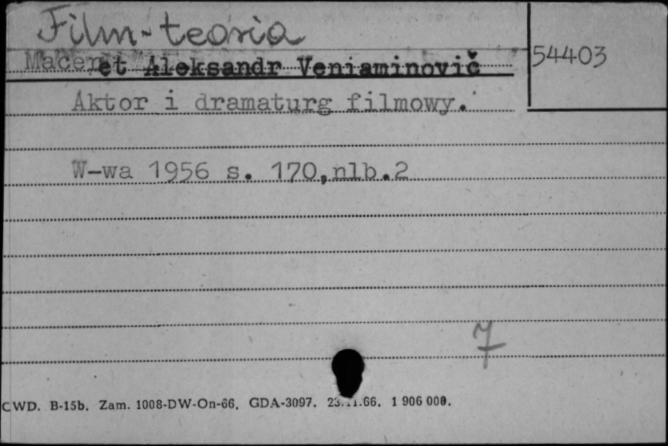 Film-teoria
54403
Maceret Aleksandr Veniaminovič
Aktor i dramaturg filmowy.
W-wa 1956 s. 170,nlb.2
7
CWD. B-15b. Zam. 1008-DW-On-66. GDA-3097. 23.11.66. 1 906 000.